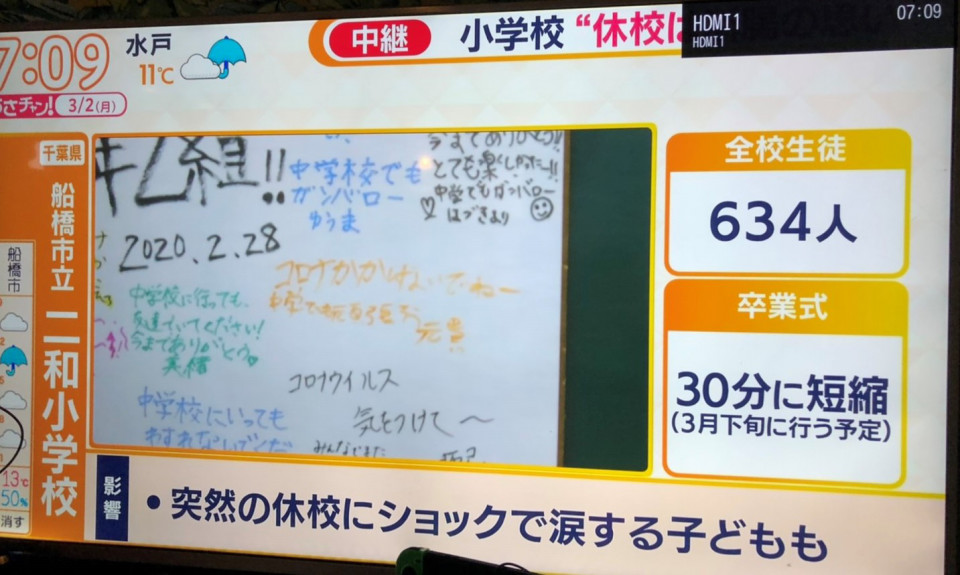 7:09
水戸
11℃
あさチャン!
3/2(月)
中継
小学校 “休校は
HDMI1
HDMI1
07:09
千葉県
船橋市立 二和小学校
船橋市
13℃
50%
消す
組!!
2020.2.28
中学校でも
ガンバロー
ゆうま
とても楽しかったー!!
中学でもガンバロー
はづきより
中学校に行っても、
友達でいてください!
今までありがとう。
コロナウイルス
気をつけて〜
中学校にいっても
わすれないでくだ
全校生徒
634人
卒業式
30分に短縮
(3月下旬に行う予定)
影響
・突然の休校にショックで涙する子どもも